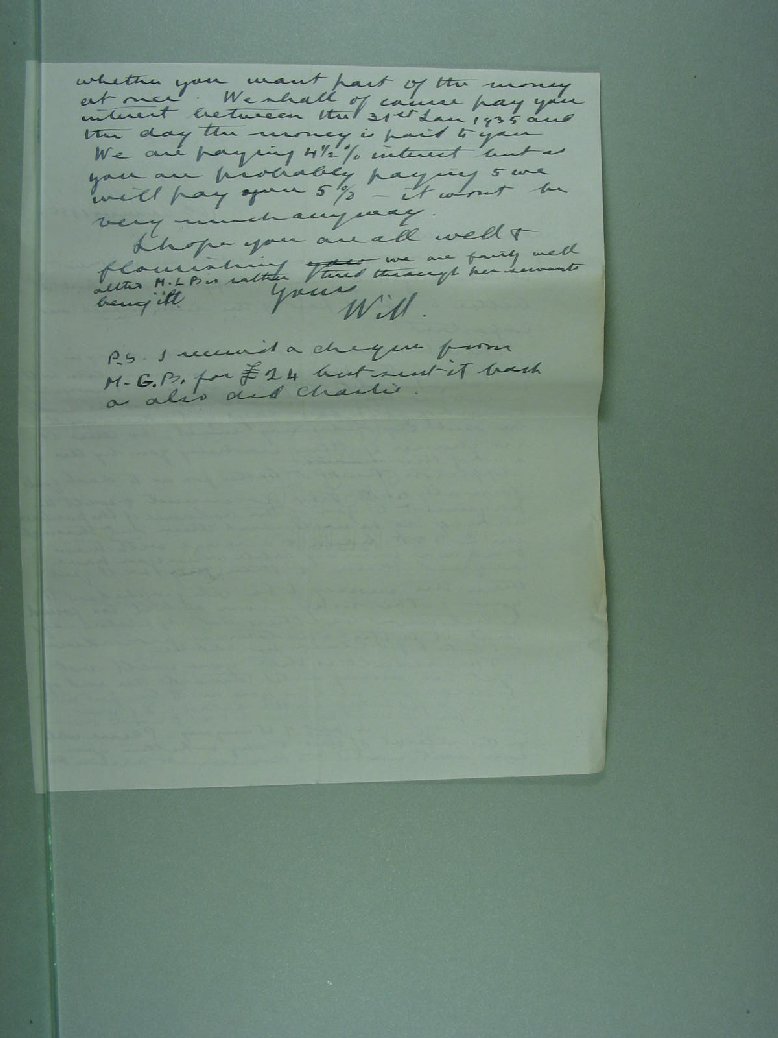 whether you want part of the money
at once. We shall of course pay you
interest between the 31st Jan 1935 and
the day the money is paid to you
We are paying 4½% interest but as
you are probably paying 5 we
will pay you 5% – it wont be
very much anyway.
I hope you are all well &
flourishing we are fairly well
altho M.L.P. is rather tired through her servants
being ill
Yours
Will.
P.S. I received a cheque from
M-G.Ps. for £24 but sent it back
as also did Charlie.